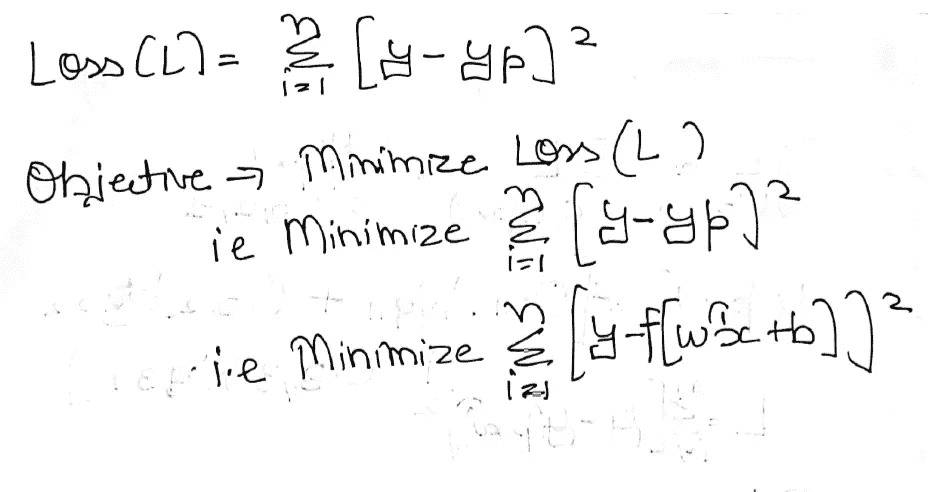 Loss (L) = n Σ i=1 [y - yp]²
Objective → Minimize Loss (L)
ie Minimize n Σ i=1 [y - yp]²
i.e Minimize n Σ i=1 [y - f[wᵀx + b]]²